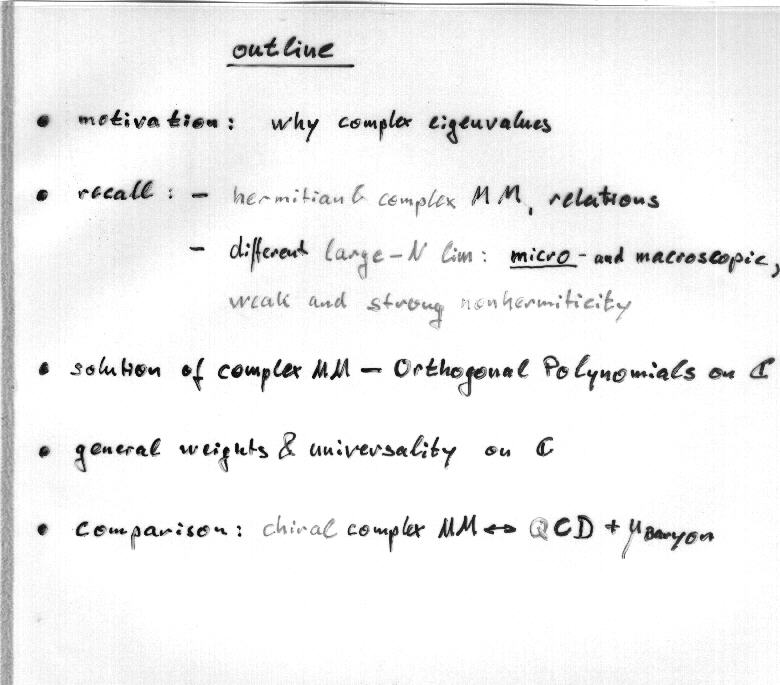 outline
• motivation: why complex eigenvalues
• recall: - hermitian & complex MM, relations
- different large-N lim: micro- and macroscopic,
weak and strong nonhermiticity
• solution of complex MM - Orthogonal Polynomials on ℂ
• general weights & universality on ℂ
• comparison: chiral complex MM ↔ QCD + μBaryon